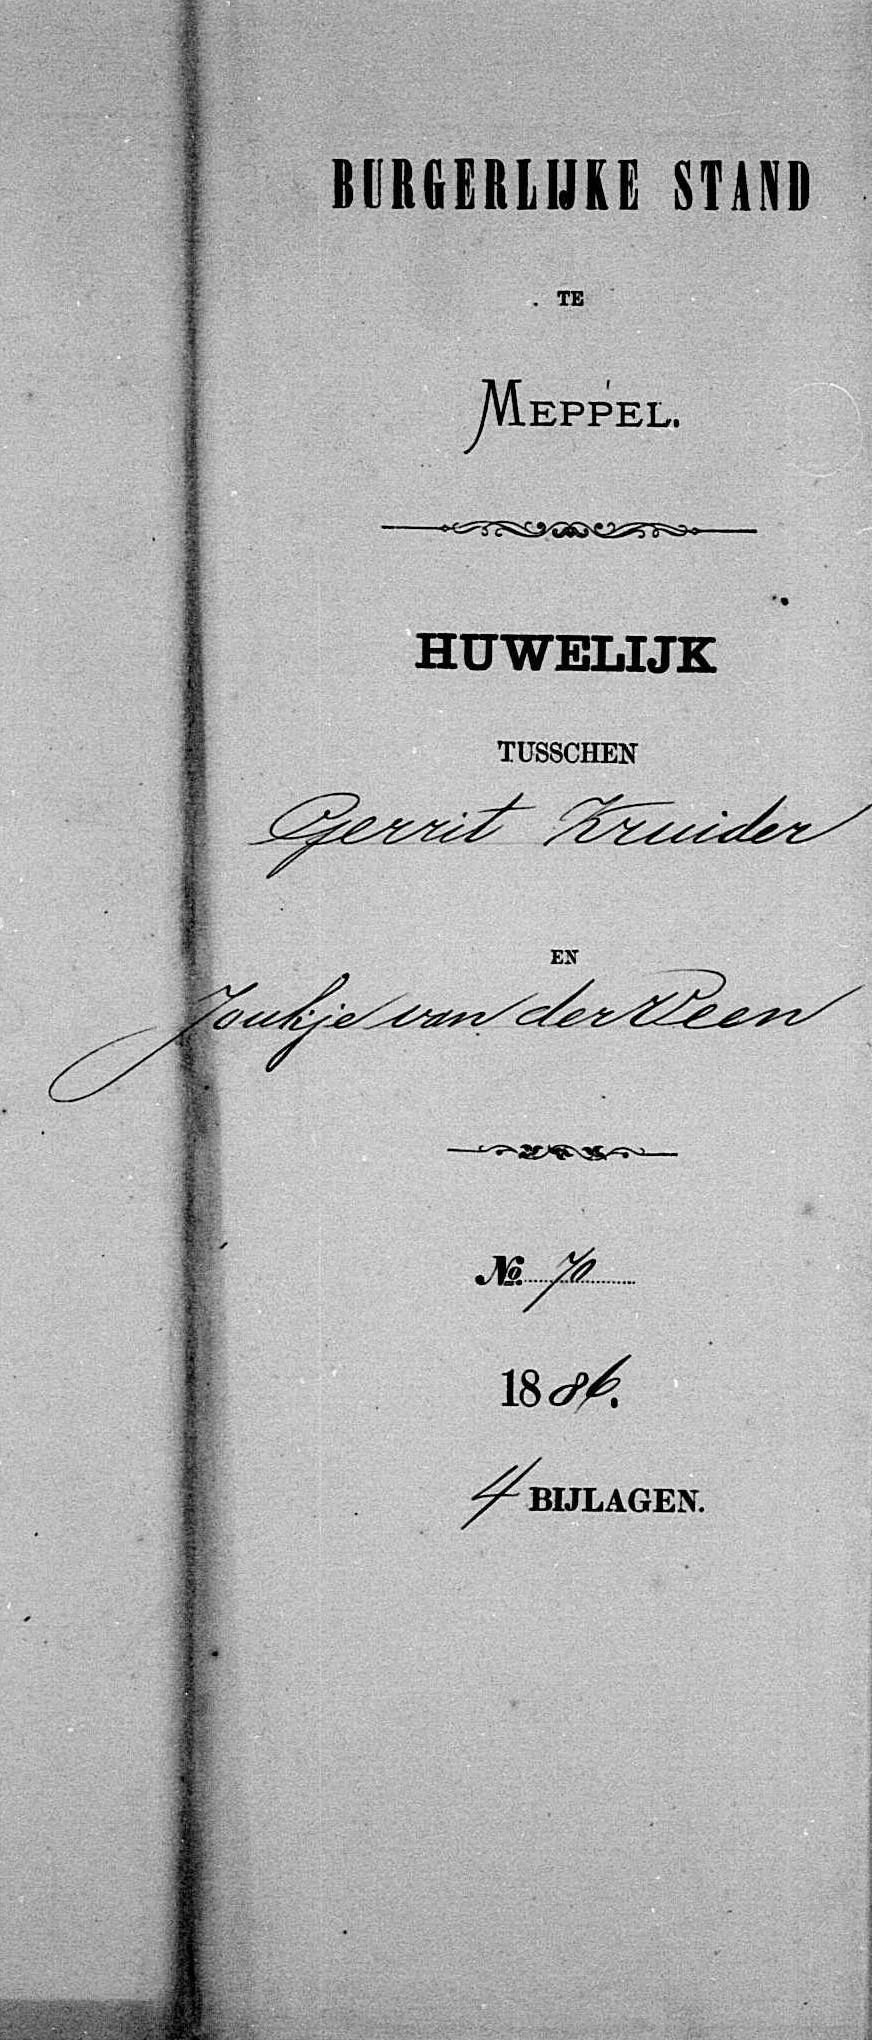 BURGERLIJKE STAND
TE
MEPPEL.
HUWELIJK
TUSSCHEN
Gerrit Kruider
EN
Joukje van der Veen
No. 70
1886.
4 BIJLAGEN.